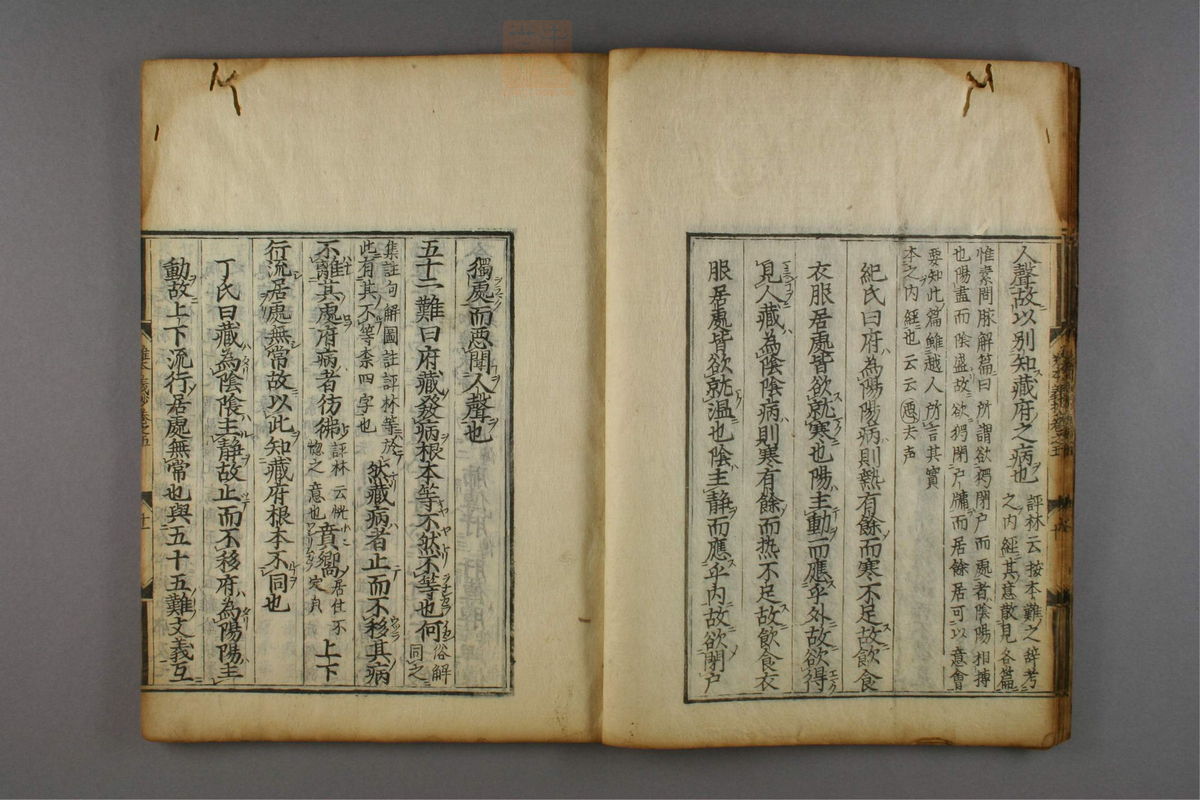 人聲故以別知藏府之病也 評林云按本難之辞考
之内經其意散見各篇
惟素問脉解篇曰所謂欲独閉户而處者陰陽相搏
也陽盡而陰盛故欲独閉户牖而居餘居可以意會
要知此篇雖越人所言其實
本之内經也云云 悪去声
紀氏曰府為陽陽病則熱有餘而寒不足故飲食
衣服居處皆欲就寒也陽主動而應乎外故欲得
見人藏為陰陰病則寒有餘而热不足故飲食衣
服居處皆欲就温也陰主静而應乎内故欲閉户
獨處而悪聞人聲也
五十二難曰府藏發病根本等不然不等也何 俗解
同之
集註句解圖註評林等於
此有其不等柰四字也
然藏病者止而不移其病
不離其處府病者彷彿 評林云恍
惚之意也
賁嚮 居住不
定皃
上下
行流居處無常故以此知藏府根本不同也
丁氏曰藏為陰陰主静故止而不移府為陽陽主
動故上下流行居處無常也與五十五難文義互